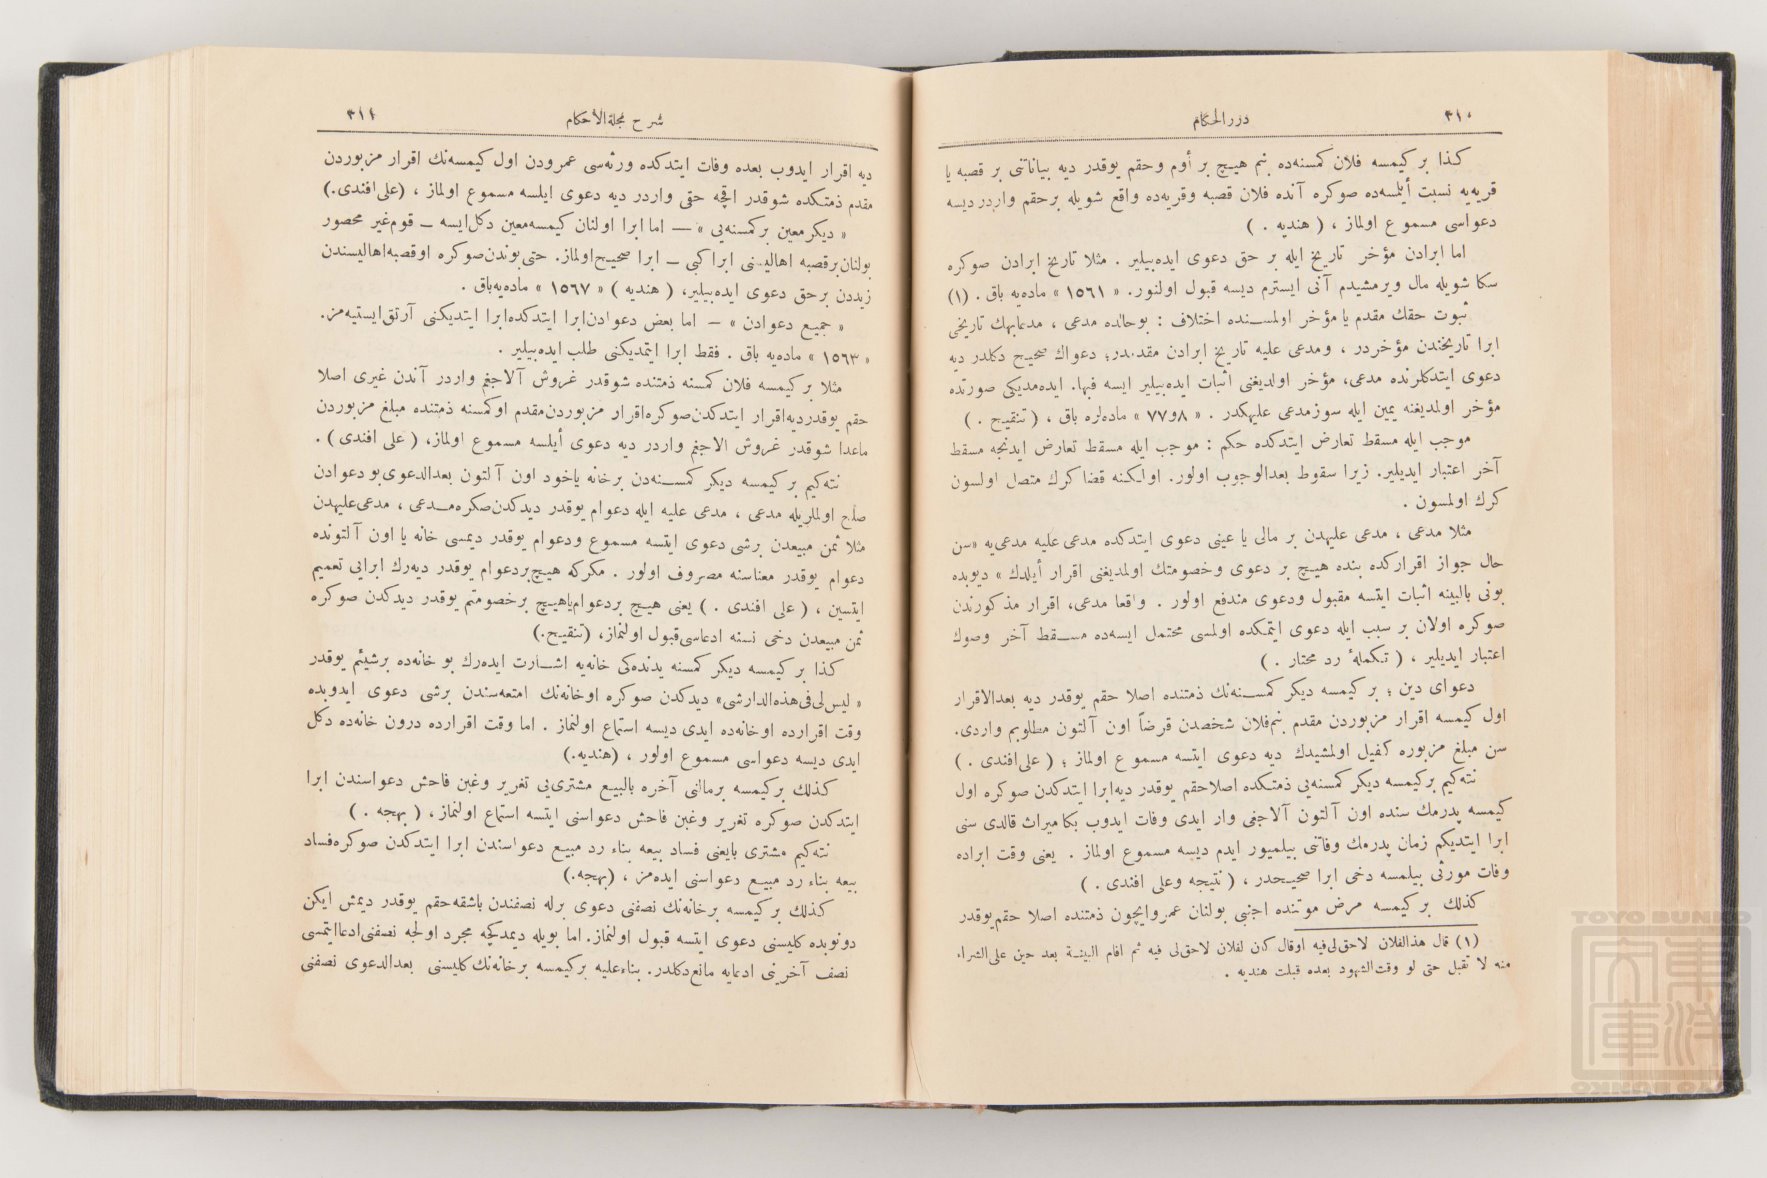 ٣١٠
درر الحكام
كذا بر كيمسه فلان كمسنه‌ده بنم هيچ بر أوم وحقم يوقدر ديه بياناتنى بر قصبه يا
قريه‌يه نسبت أيلمسه‌ده صوكره آنده فلان قصبه وقريه‌ده واقع شويله برحقم واردر ديسه
دعواسى مسموع اولماز ، ( هنديه . )
اما ابرادن مؤخر تاريخ ايله بر حق دعوى ايده‌بيلير . مثلا تاريخ ابرادن صوكره
سكا شويله مال ويرمشيدم آنى ايسترم ديسه قبول اولنور. « ١٥٦١ » ماده‌يه باق . (١)
ثبوت حقك مقدم يا مؤخر اولمسنده اختلاف : بوحالده مدعى ، مدعابهك تاريخى
ابرا تاريخندن مؤخردر ، ومدعى عليه تاريخ ابرادن مقدمدر؛ دعواك صحيح دكلدر ديه
دعوى ايتدكلرنده مدعى، مؤخر اولديغنى اثبات ايده‌بيلير ايسه فبها. ايده‌مديكى صورتده
مؤخر اولمديغنه يمين ايله سوز مدعى عليهكدر . « ٨و٧٧ » ماده‌لره باق ، ( تنقيح . )
موجب ايله مسقط تعارض ايتدكده حكم : موجب ايله مسقط تعارض ايدنجه مسقط
آخر اعتبار ايديلير. زيرا سقوط بعدالوجوب اولور. اولكنه قضا كرك متصل اولسون
كرك اولمسون .
مثلا مدعى ، مدعى عليهدن بر مالى يا عينى دعوى ايتدكده مدعى عليه مدعى‌يه «سن
حال جواز اقرارکده بنده هيچ بر دعوى وخصومتك اولمديغنى اقرار أيلدك » ديوبده
بونى بالبينه اثبات ايتسه مقبول ودعوى مندفع اولور . واقعا مدعى، اقرار مذكورندن
صوكره اولان بر سبب ايله دعوى ايتمكده اولمسى محتمل ايسه‌ده مسقط آخر وصوك
اعتبار ايديلير ، ( تكملهٔ رد محتار . )
دعواى دين ؛ بر كيمسه ديكر كمسنه‌نك ذمتنده اصلا حقم يوقدر ديه بعدالاقرار
اول كيمسه اقرار مزبوردن مقدم بنم فلان شخصدن قرضاً اون آلتون مطلوبم واردى.
سن مبلغ مزبوره كفيل اولمشيدك ديه دعوى ايتسه مسموع اولماز ؛ ( على‌افندى . )
نته‌كيم بركيمسه ديكر كمسنه‌يى ذمتكده اصلا حقم يوقدر ديه‌ابرا ايتدكدن صوكره اول
كيمسه پدرمك سنده اون آلتون آلاجغى وار ايدى وفات ايدوب بكا ميراث قالدى سنى
ابرا ايتديكم زمان پدرمك وفاتنى بيلميور ايدم ديسه مسموع اولماز . يعنى وقت ابراده
وفات مورثى بيلمسه دخى ابرا صحيحدر ، ( نتيجه وعلى افندى . )
كذلك بر كيمسه مرض موتنده اجنبى بولنان عمروايچون ذمتنده اصلا حقم يوقدر
(١) قال هذالفلان لاحق‌لى‌فيه اوقال كان لفلان لاحق‌لى فيه ثم اقام البينة بعد حين على الشراء
منه لا تقبل حتى لو وقت الشهود بعده قبلت هنديه .
شرح مجلة الأحكام
٣١١
ديه اقرار ايدوب بعده وفات ايتدكده ورثه‌سى عمرودن اول كيمسه‌نك اقرار مزبوردن
مقدم ذمتكده شوقدر اقچه حقى واردر ديه دعوى ايلسه مسموع اولماز ، (على افندى.)
« ديكر معين بركمسنه‌يى » — اما ابرا اولنان كيمسه‌معين دكل ايسه — قوم غير محصور
بولنان برقصبه اهاليسنى ابراكبى — ابرا صحيح اولماز. حتى بوندن صوكره اوقصبه‌اهاليسندن
زيددن برحق دعوى ايده‌بيلير، ( هنديه ) « ١٥٦٧ » ماده‌يه‌باق .
« جميع دعوادن » — اما بعض دعوادن ابرا ايتدكده‌ابرا ايتديكنى آرتق ايستيه‌مز.
« ١٥٦٣ » ماده‌يه باق . فقط ابرا ايتمديكنى طلب ايده‌بيلير .
مثلا بر كيمسه فلان كمسنه ذمتنده شوقدر غروش آلاجغم واردر آندن غيرى اصلا
حقم يوقدرديه‌اقرار ايتدكدن صوكره‌اقرار مزبوردن مقدم اوكمسنه ذمتنده مبلغ مزبوردن
ماعدا شوقدر غروش الاجغم واردر ديه دعوى أيلسه مسموع اولماز، ( على افندى ) .
نته‌كيم بر كيمسه ديكر كمسنه‌دن برخانه ياخود اون آلتون بعدالدعوى بو دعوادن
صلح اولملريله مدعى ، مدعى عليه ايله دعوام يوقدر ديدكدن صكره‌مدعى ، مدعى‌عليهدن
مثلا ثمن مبيعدن برشى دعوى ايتسه مسموع ودعوام يوقدر ديمسى خانه يا اون آلتونده
دعوام يوقدر معناسنه مصروف اولور . مكركه هيچ‌بردعوام يوقدر ديه‌رك ابرايى تعميم
ايتسين ، ( على افندى . ) يعنى هيچ بردعوام‌ياهيچ برخصومتم يوقدر ديدكدن صوكره
ثمن مبيعدن دخى نسنه ادعاسى قبول اولنماز، (تنقيح.)
كذا بر كيمسه ديكر كمسنه يدنده‌كى خانه‌يه اشارت ايده‌رك بو خانه‌ده برشيئم يوقدر
« ليس لى فى هذه الدار شى» ديدكدن صوكره اوخانه‌نك امتعه‌سندن برشى دعوى ايدوبده
وقت اقرارده اوخانه‌ده ايدى ديسه استماع اولنماز . اما وقت اقرارده درون خانه‌ده دكل
ايدى ديسه دعواسى مسموع اولور ، (هنديه.)
كذلك بركيمسه برمالنى آخره بالبيع مشترى‌يى تغرير وغبن فاحش دعواسندن ابرا
ايتدكدن صوكره تغرير وغبن فاحش دعواسنى ايتسه استماع اولنماز، ( بهجه . )
نته‌كيم مشترى بايعنى فساد بيعه بناء رد مبيع دعواسندن ابرا ايتدكدن صوكره‌فساد
بيعه بناء رد مبيع دعواسنى ايده‌مز ، (بهجه.)
كذلك بر كيمسه برخانه‌نك نصفنى دعوى برله نصفندن باشقه‌حقم يوقدر ديمش ايكن
دونوبده كليسنى دعوى ايتسه قبول اولنماز. اما بويله ديمدكچه مجرد اولجه نصفنى‌ادعا‌ايتمسى
نصف آخرينى ادعايه مانع دكلدر. بناءعليه بركيمسه برخانه‌نك كليسنى بعدالدعوى نصفنى